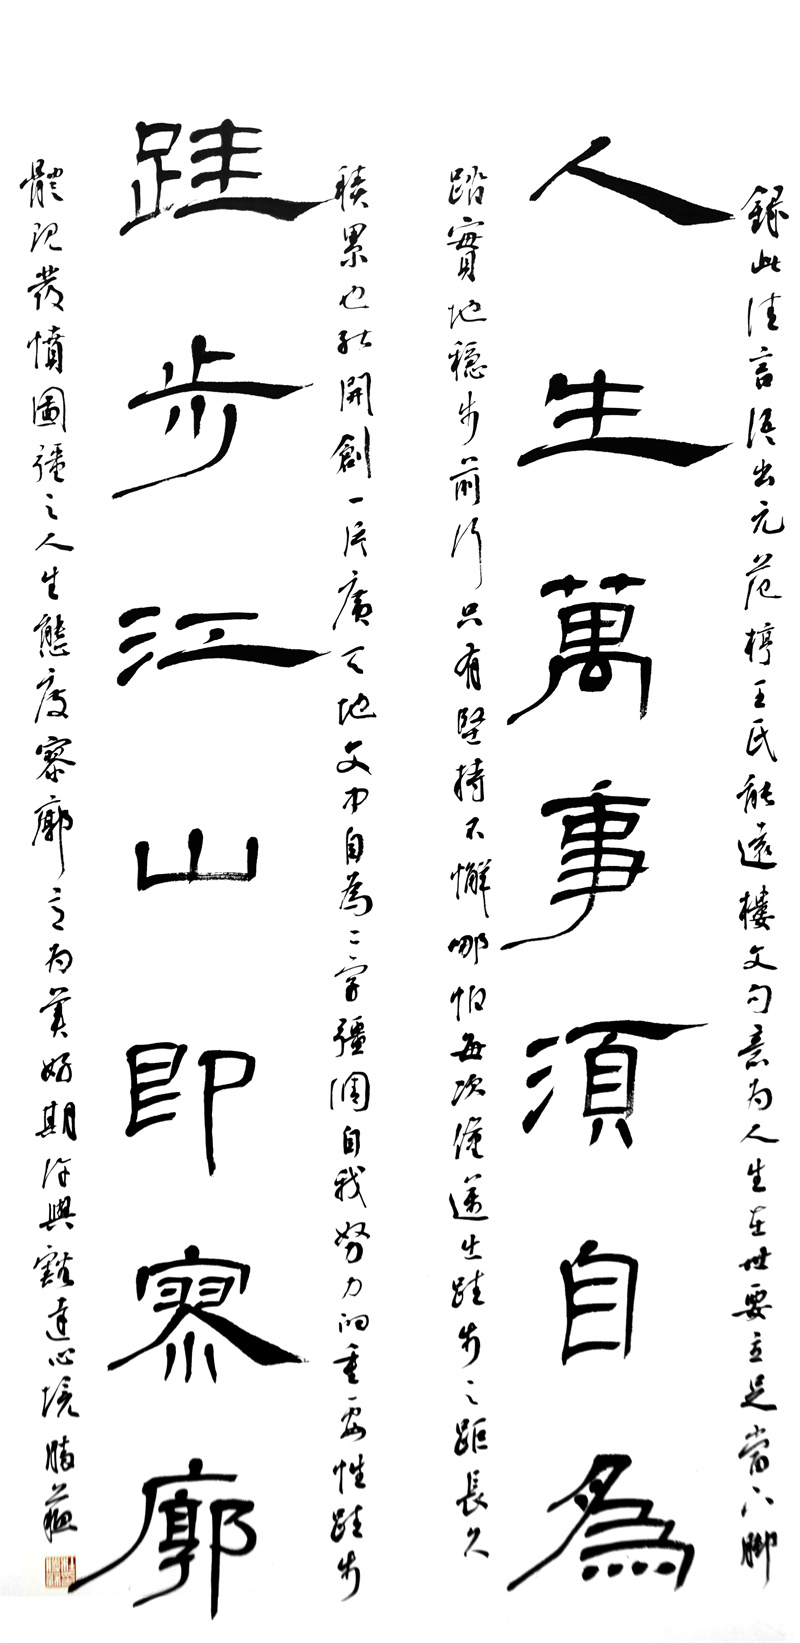 錄此佳言語出元范梈王氏能遠樓文句意为人生在世要立足當下腳
人生萬事須自為
踏實地穩步前行只有堅持不懈哪怕每次僅邁出跬步之距長久
積累也能開創一片廣天地文中自為二字彊調自我努力的重要性跬步
跬步江山即寥廓
體現發憤圖彊之人生態度寥廓为美好期许與豁達心境